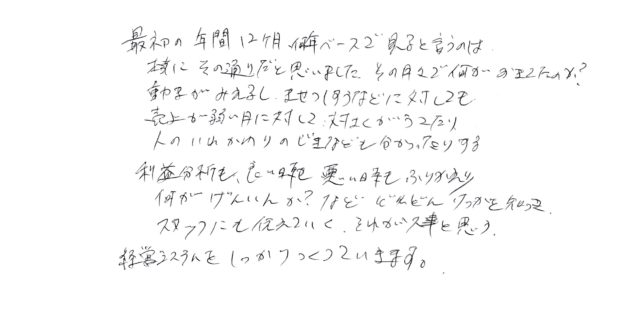 最初の年間12ヶ月、何年ベースで見ると言うのは
本当にその通りだと思いました。その月々で何がおきてたのか?
動きがみえるし、ませつほうなどに対しても
売上が弱い月に対して、対さくがうてたり
人のいれかわりのじきなども分かったりする
利益分析も、良い時も悪い時もふりかえり
何がげんいんか?など どんどんけっかを知って
スタッフにも伝えていく、それが大事と思う。
経営システムをしっかりつくっていきます。